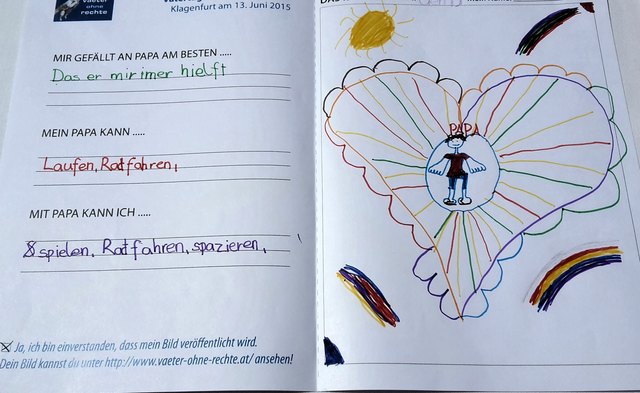 väter
ohne
rechte
Klagenfurt am 13. Juni 2015
MIR GEFÄLLT AN PAPA AM BESTEN .....
Das er mir imer hielft
MEIN PAPA KANN .....
Laufen, Ratfahren,
MIT PAPA KANN ICH .....
spielen, Ratfahren, spazieren,
Ja, ich bin einverstanden, dass mein Bild veröffentlicht wird.
Dein Bild kannst du unter http://www.vaeter-ohne-rechte.at/ ansehen!
PAPA